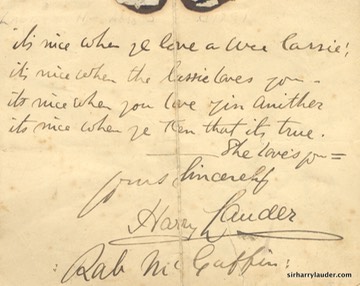 it's nice when ye love a wee lassie!
it's nice when the lassie loves you -
its nice when you love yin anither
its nice when ye Ken that its true.
She loves you =
yours Sincerely
Harry Lauder
: Rab Mc Gaffin :
sirharrylauder.com